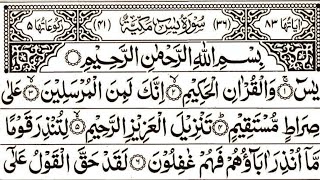 اٰیَاتُهَا ۸۳ (۳۶) سُوْرَةُ یٰسٓ مَكِّیَّةٌ (۴۱) رُكُوْعَاتُهَا ۵
بِسْمِ اللّٰهِ الرَّحْمٰنِ الرَّحِیْمِ
یٰسٓ ۝۱ وَالْقُرْاٰنِ الْحَكِیْمِ ۝۲ اِنَّكَ لَمِنَ الْمُرْسَلِیْنَ ۝۳ عَلٰی
صِرَاطٍ مُّسْتَقِیْمٍ ۝۴ تَنْزِیْلَ الْعَزِیْزِ الرَّحِیْمِ ۝۵ لِتُنْذِرَ قَوْمًا
مَّاۤ اُنْذِرَ اٰبَآؤُهُمْ فَهُمْ غٰفِلُوْنَ ۝۶ لَقَدْ حَقَّ الْقَوْلُ عَلٰۤی